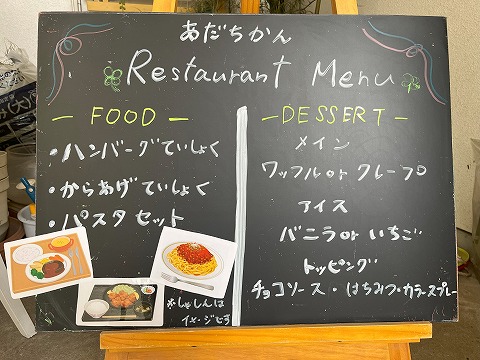 あだちかん
Restaurant Menu
ー FOOD ー
・ハンバーグていしょく
・からあげていしょく
・パスタセット
※しゃしんは
イメージです
ー DESSERT ー
メイン
ワッフル or クレープ
アイス
バニラ or いちご
トッピング
チョコソース・はちみつ・カラースプレー